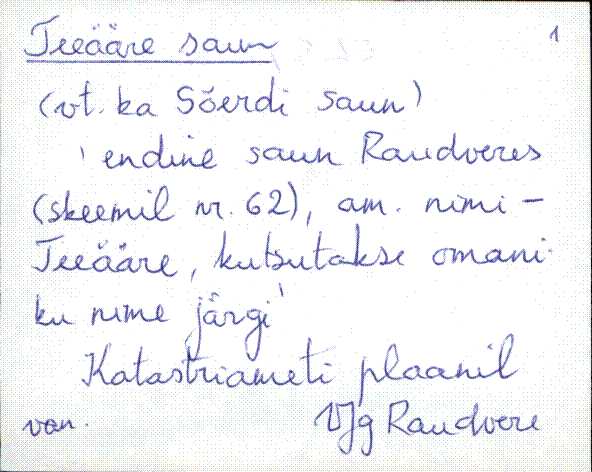 Teeääre saun 1
(vt. ka Sõerdi saun)
' endine saun Raudveres
(skeemil nr. 62), am. nimi -
Teeääre, kutsutakse omani-
ku nime järgi'
Katastriameti plaanil
van. VJg Raudvere